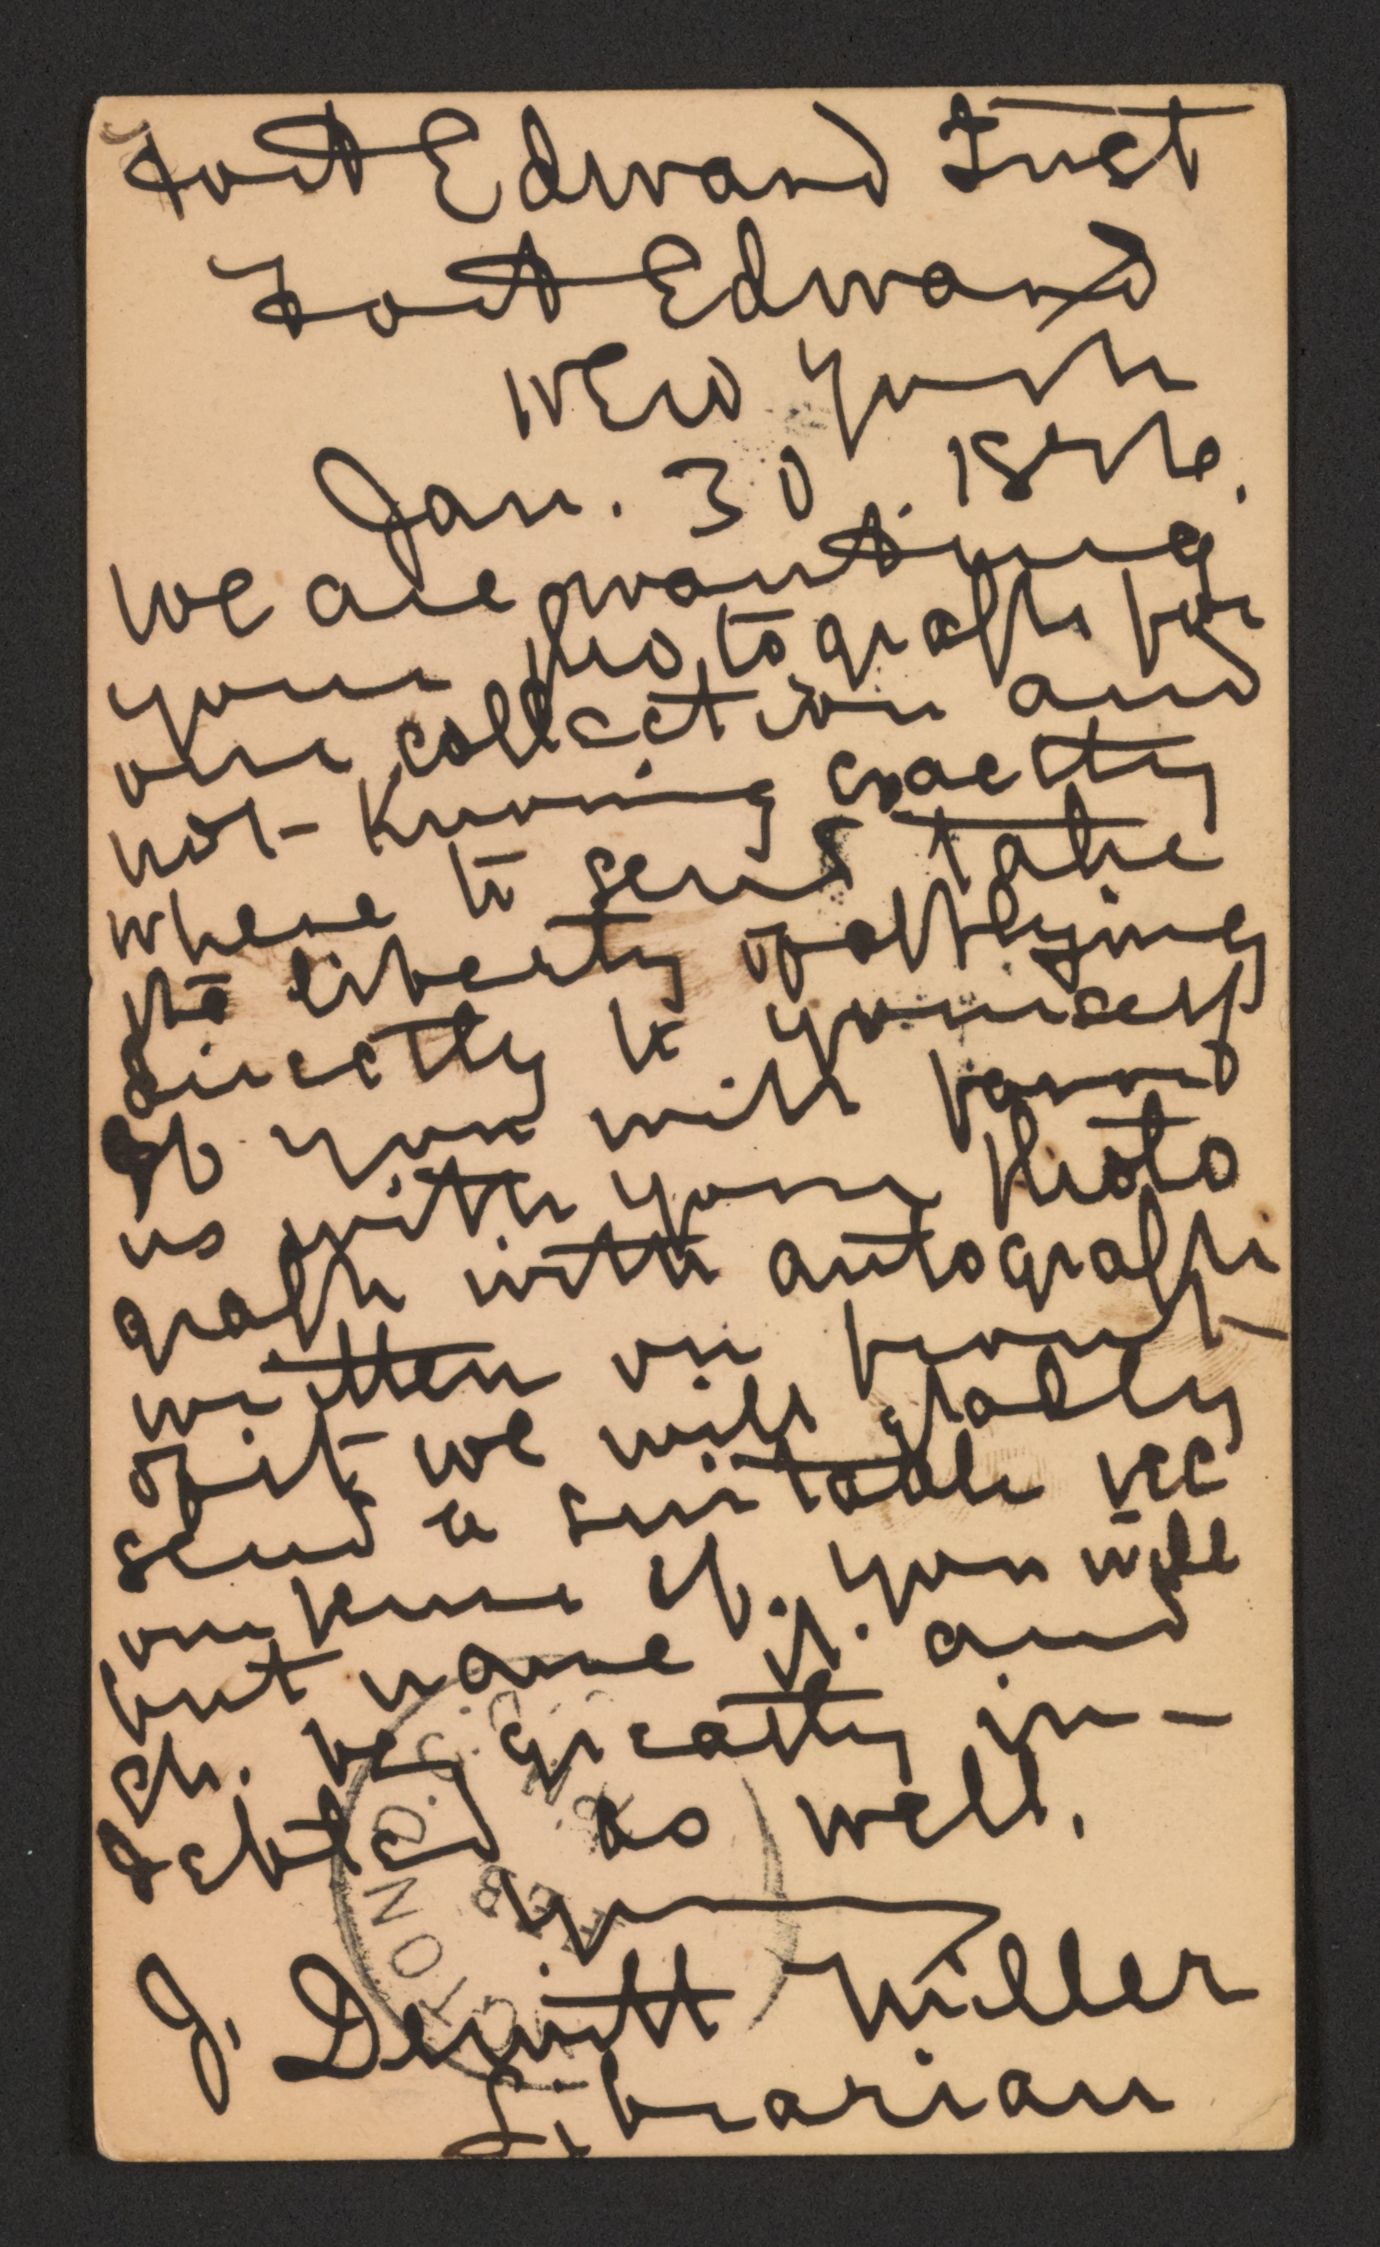 Fort Edward Inst
Fort Edward
New York
Jan. 30. 1876.
We are wanting
your photograph for
our collection and
not knowing exactly
where to send take
the liberty of applying
directly to yourself
If you will favor
us with your photo
graph with autograph
written on front
of it we will gladly
send a suitable rec
ompense if you will
but name it and
be greatly in-
debted as well.
J. Dewitt Miller
Librarian